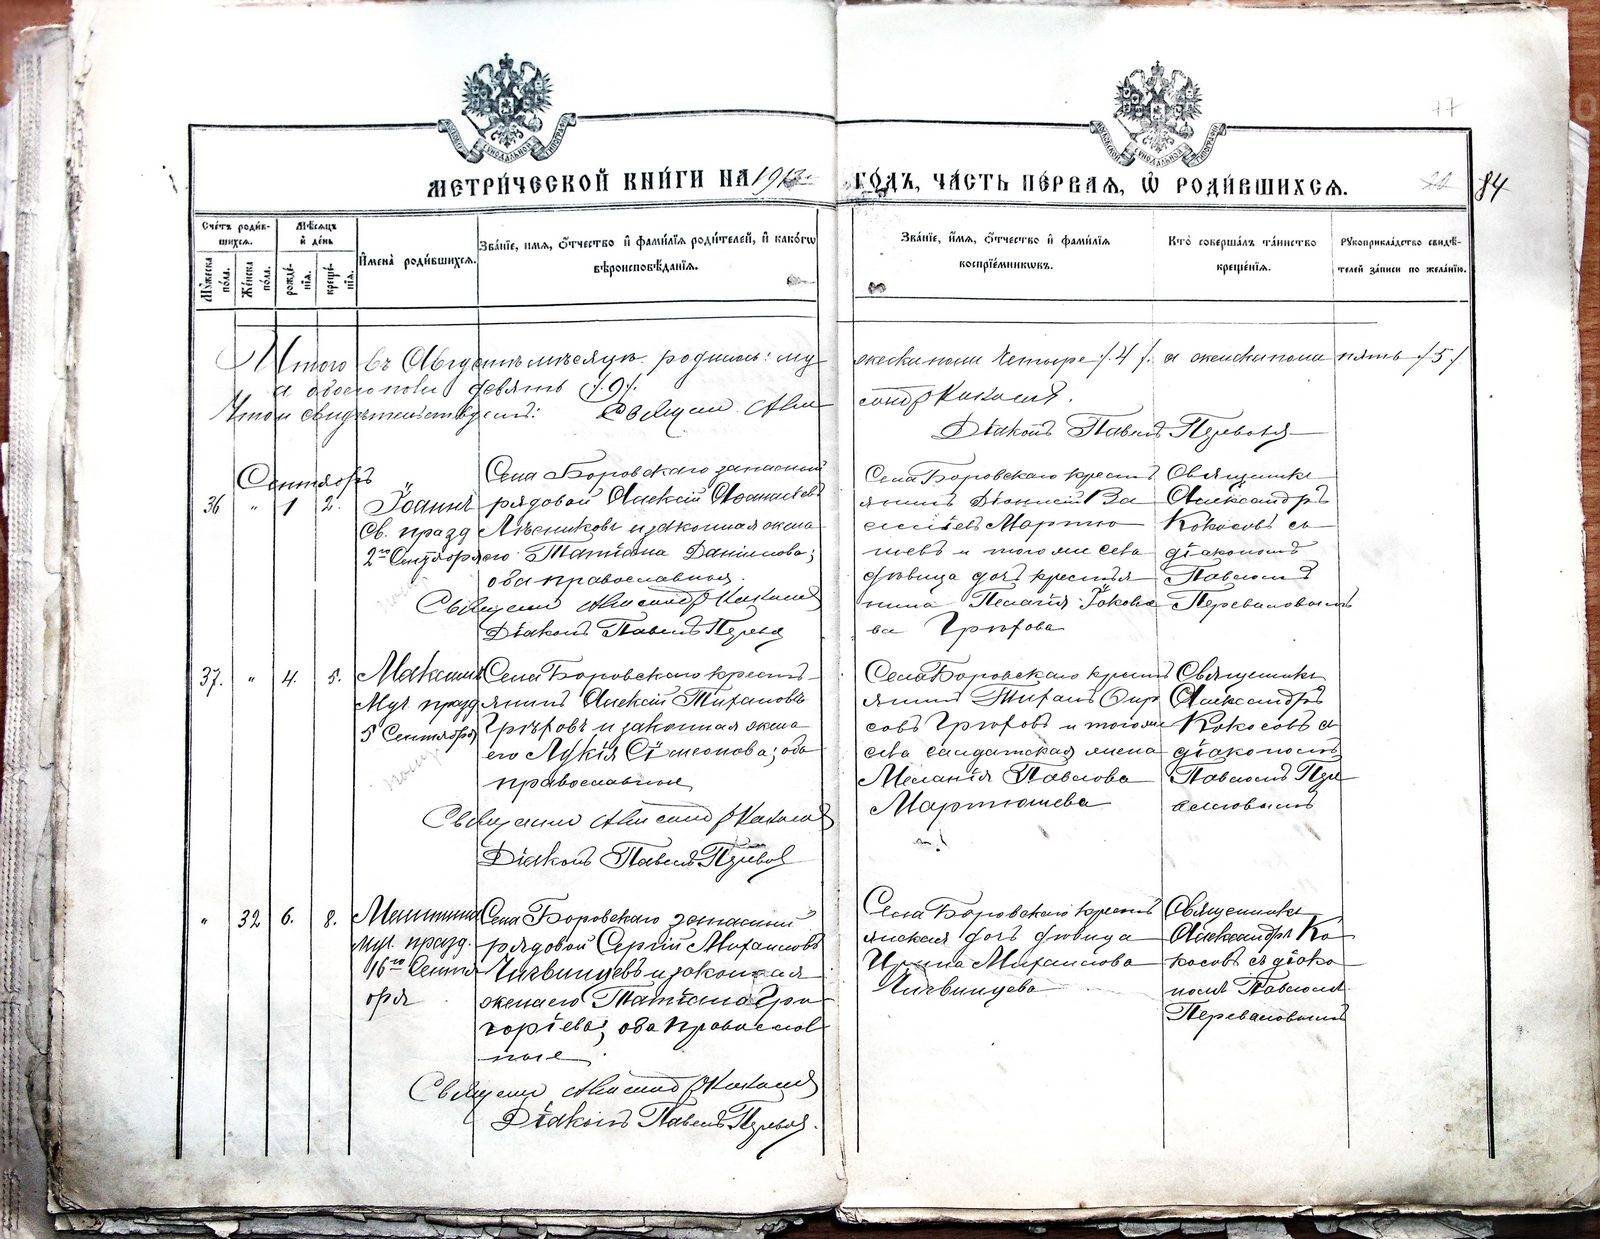 77
МЕТРИ́ЧЕСКОЙ КНИ́ГИ НА 1913 ГО́ДЪ, ЧА́СТЬ ПЕ́РВАЯ, Ѡ РОДИ́ВШИХСЯ.
84
Сче́тъ роди́в-
шихся.
Му́жеска по́ла.
Же́нска по́ла.
Мѣ́сяцъ
и де́нь
рожде́-
нія.
креще́-
нія.
Имена̀ роди́вшихся.
Зва́ніе, имя, о́тчество и фами́лія роди́телей, и како́гѡ
вѣроисповѣ́данія.
Зва́ніе, имя, о́тчество и фами́лія
воспріе́мникѡвъ.
Кто̀ соверша́лъ та́инство
креще́нія.
Рукоприкла́дство свидѣ́-
телей за́писи по жела́нію.
Итого въ Августѣ мѣсяцѣ родилось: му
жеска пола четыре /.4/. а женска пола пять /.5./
а обоего пола девять /.9/.
Что и свидѣтельствуемъ: Священ. Але
сандръ Кокосов.
Діаконъ Павелъ Перевал
Сентябрь
36
"
1
2.
Іоаннъ
Св. празд
2го Сентября
Села Боровскаго запасный
рядовой Алексій Аѳанасіевъ
Лѣсниковъ и законная жена
его Татіана Даніилова;
оба православныя.
Священ Александр Кокосов
Діаконъ Павелъ Перевал
Села Боровскаго кресть
янинъ Діонисій Ва
силіевъ Мартю
шевъ и того же села
дѣвица дочь крестья
нина Пелагія Іаковле
ва Грѣхова
Священникъ
Александръ
Кокосовъ съ
діакономъ
Павломъ
Переваловымъ
37.
"
4.
5.
Максимъ
Муч. празд
5 Сентября
Села Боровскаго кресть
янинъ Алексій Тихановъ
Грѣховъ и законная жена
его Лукія Сімеонова; оба
православные
Священ Александр Кокосов
Діаконъ Павелъ Перевал
Села Боровскаго кресть
янинъ Тиханъ Фир
совъ Грѣховъ и того же
села солдатская жена
Меланія Павлова
Мартюшева
Священникъ
Александръ
Кокосовъ съ
діакономъ
Павломъ Пере
валовымъ
"
32
6.
8.
Мелитина
муч. празд.
16го Сентя
бря
Села Боровскаго запасный
рядовой Сергій Михаиловъ
Чигвинцевъ и законная
жена его Татіана Гри
горіева; оба православ
ные
Священ Александр Кокосов
Діаконъ Павелъ Перевал.
Села Боровскаго кресть
янская дочь дѣвица
Ирина Михаилова
Чигвинцева
Священникъ
Александръ Ко
косовъ съ діако
номъ Павломъ
Переваловымъ